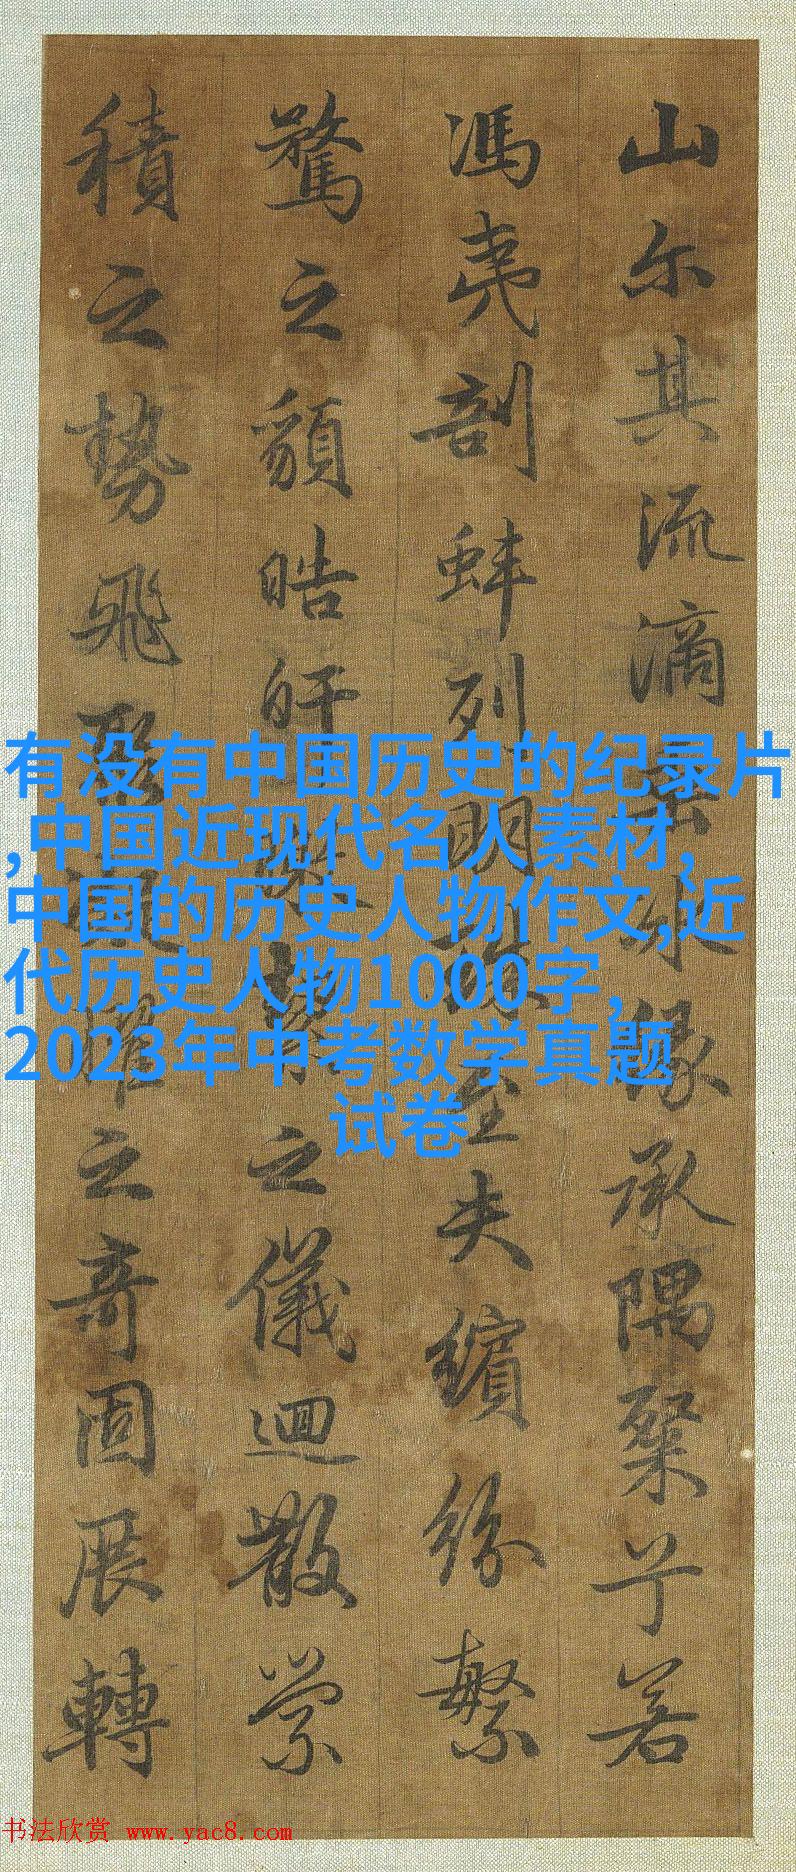 山尔其流滴垂冰緣承隅粲兮若
馮夷剖蚌列明珠至夫繽紛繁
驁之䫉皓旰潔之儀迴散縈
積之勢飛聚凝曜之奇固展轉
有没有中国历史的纪录片
,中国近现代名人素材,
中国的历史人物作文,近
代历史人物1000字,
2023年中考数学真题
试卷
书法欣赏 www.yac8.com